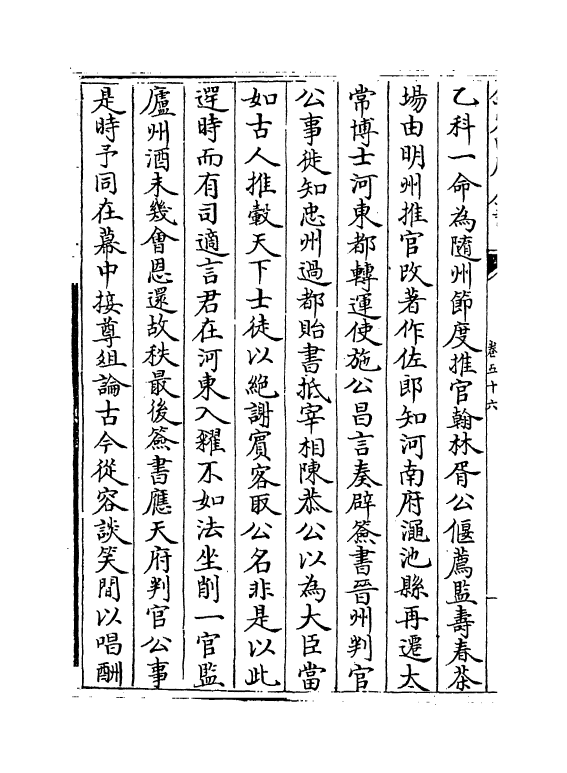 乙科一命為隨州節度推官翰林胥公偃薦監壽春茶
場由明州推官改著作佐郎知河南府澠池縣再遷太
常博士河東都轉運使施公昌言奏辟簽書晉州判官
公事徙知忠州過都貽書抵宰相陳恭公以為大臣當
如古人推轂天下士徒以絕謝賓客取公名非是以此
遅時而有司適言君在河東入糴不如法坐削一官監
廬州酒未幾會恩還故秩最後簽書應天府判官公事
是時予同在幕中接尊俎論古今從容談笑間以唱酬
卷五十六